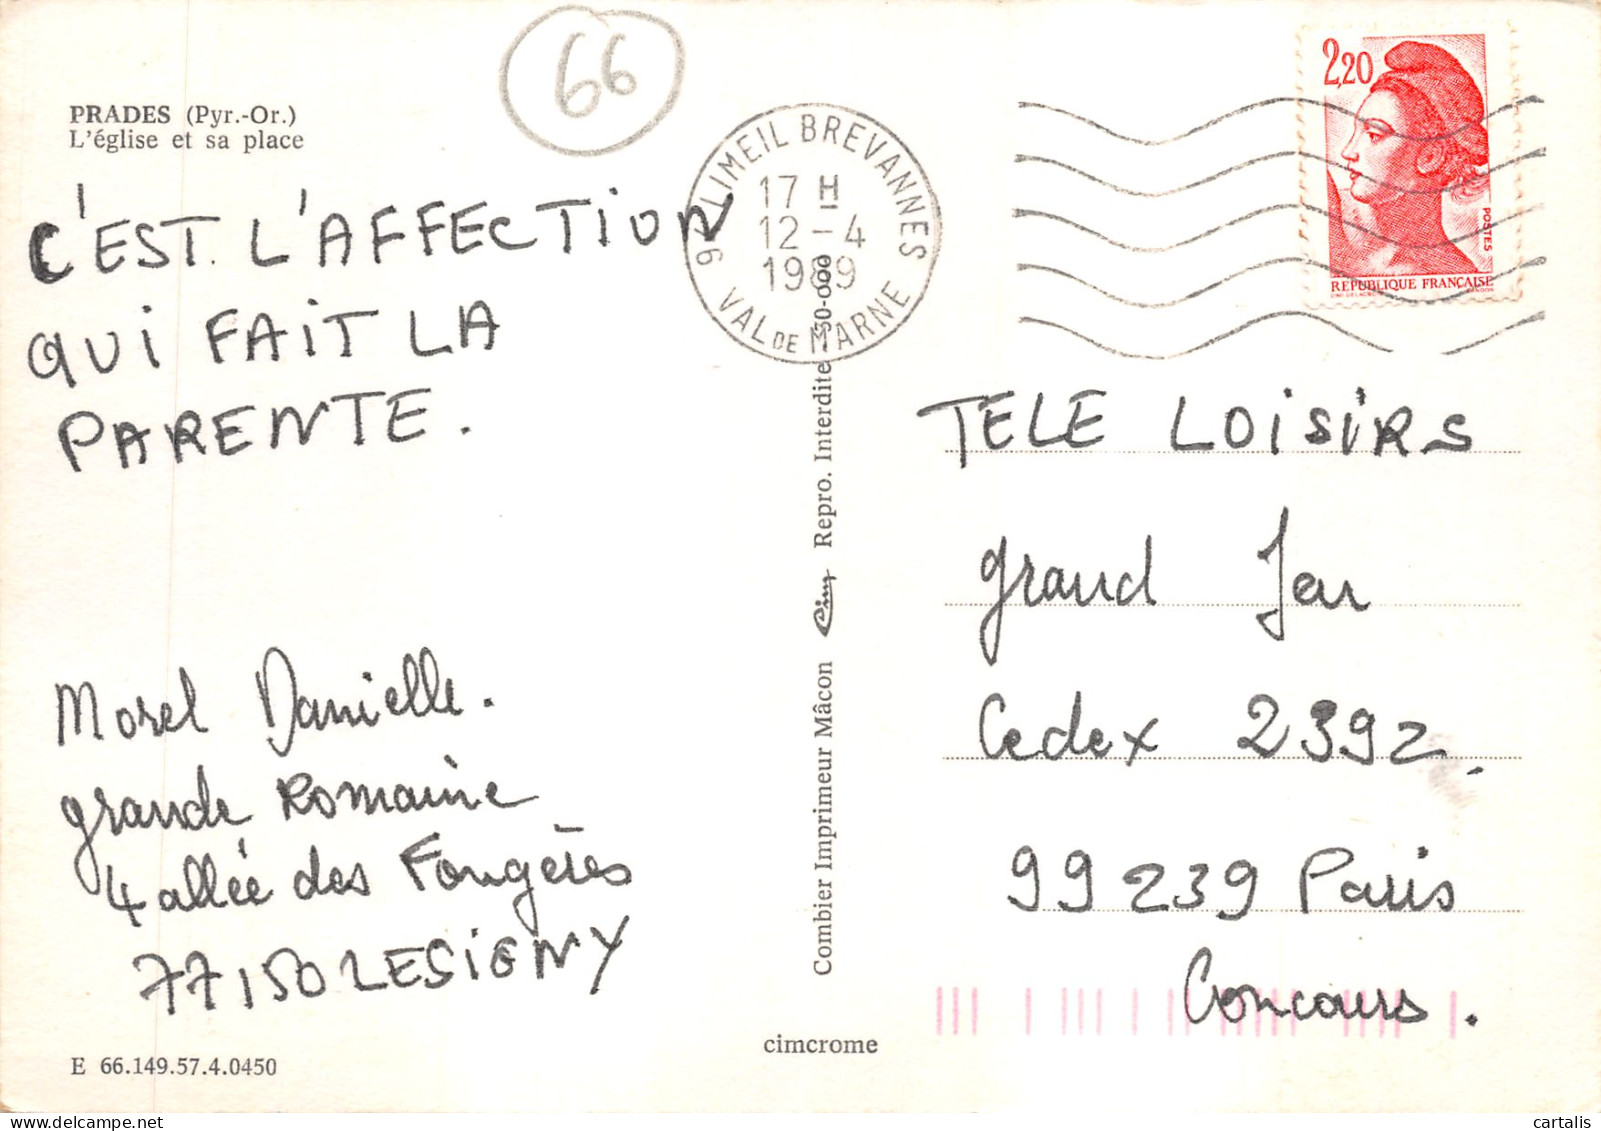 66
PRADES (Pyr.-Or.)
L'église et sa place
C'EST L'AFFECTION
QUI FAIT LA
PARENTE.
Morel Danielle.
grande Romaine
4 allée des Fougères
77150 LESIGNY
E 66.149.57.4.0450
94 LIMEIL BREVANNES
17 H
12-4
1989
VAL DE MARNE
Combier Imprimeur Mâcon Cim Repro. Interdite
cimcrome
2,20
POSTES
REPUBLIQUE FRANÇAISE
TELE LOISIRS
grand Jeu
Cedex 2392.
99239 Paris
Concours.
cartalis